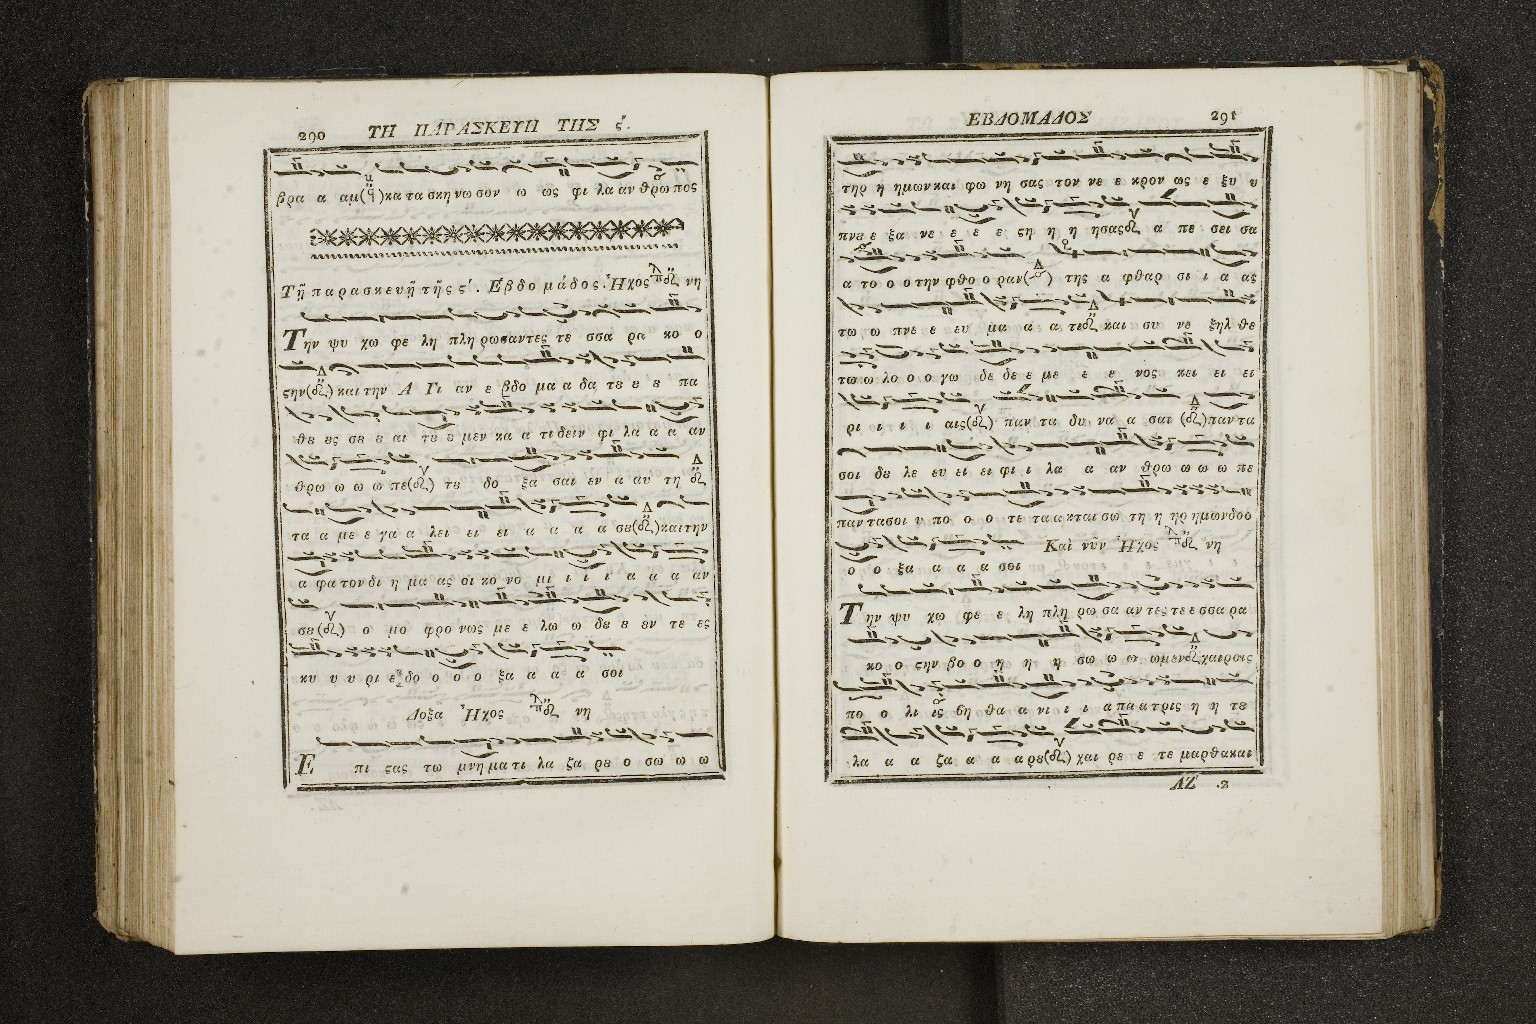 290 ΤΗ ΠΑΡΑΣΚΕΥΗ ΤΗΣ ϛ΄.
βρα α αμ( )κα τα σκη νω σον ω ως φι λα αν θρω πος
Τῇ παρασκευῇ τῆς ϛ΄. Ἑβδο μάδος. Ἦχος νη
Την ψυ χω φε λη πλη ρωσαντες τε σσα ρα κο ο
ϛην( ) και την Α Γι αν ε βδο μα α δα τȣ ȣ ȣ πα
θȣ ȣς σȣ ȣ αι τȣ ȣ μεν κα α τι δειν φι λα α α αν
θρω ω ω ω πε( ) τȣ δο ξα σαι εν α αυ τη
τα α με ε γα α λει ει ει α α α α σȣ( )και την
α φα τον δι η μα ας οι κο νο μι ι ι ι α α α αν
σȣ( ) ο μο φρο νως με ε λω ω δȣ ȣ ȣν τε ες
κυ υ υ ρι ε δο ο ο ο ξα α α α σοι
Δοξα Ἦχος νη
Ε πι ϛας τω μνη μα τι λα ζα ρȣ ο σω ω ω
ΕΒΔΟΜΑΔΟΣ 291
τηρ η ημων και φω νη σας τον νε ε κρον ως ε ξυ υ
πνȣ ε ξα νε ε ε ε ϛη η η ησας α πε σει σα
α το ο ο την φθο ο ραν( ) της α φθαρ σι ι α ας
τω ω πνε ε ευ μα α α τι και συ νε ξηλ θε
τω ω λο ο ο γω δε δε ε με ε ε νος κει ει ει
ρι ι ι ι αις( ) παν τα δυ να α σαι ( )παν τα
σοι δȣ λε ευ ει ει φι ι λα α αν θρω ω ω ω πε
παν τα σοι υ πο ο ο τε τα α κται σω τη η ηρ ημων δο ο
Καὶ νῦν Ἦχος νη
ο ο ξα α α α σοι
Την ψυ χω φε ε λη πλη ρω σα αν τες τε ε σσα ρα
κο ο ϛην βο ο η η η η σω ω ω ωμεν χαιροις
πο ο λι ις βη θα α νι ι ι α πα α τρις η η τȣ
λα α α ζα α α α ρȣ( ) χαι ρε ε τε μαρθα και
ΔΖ .2